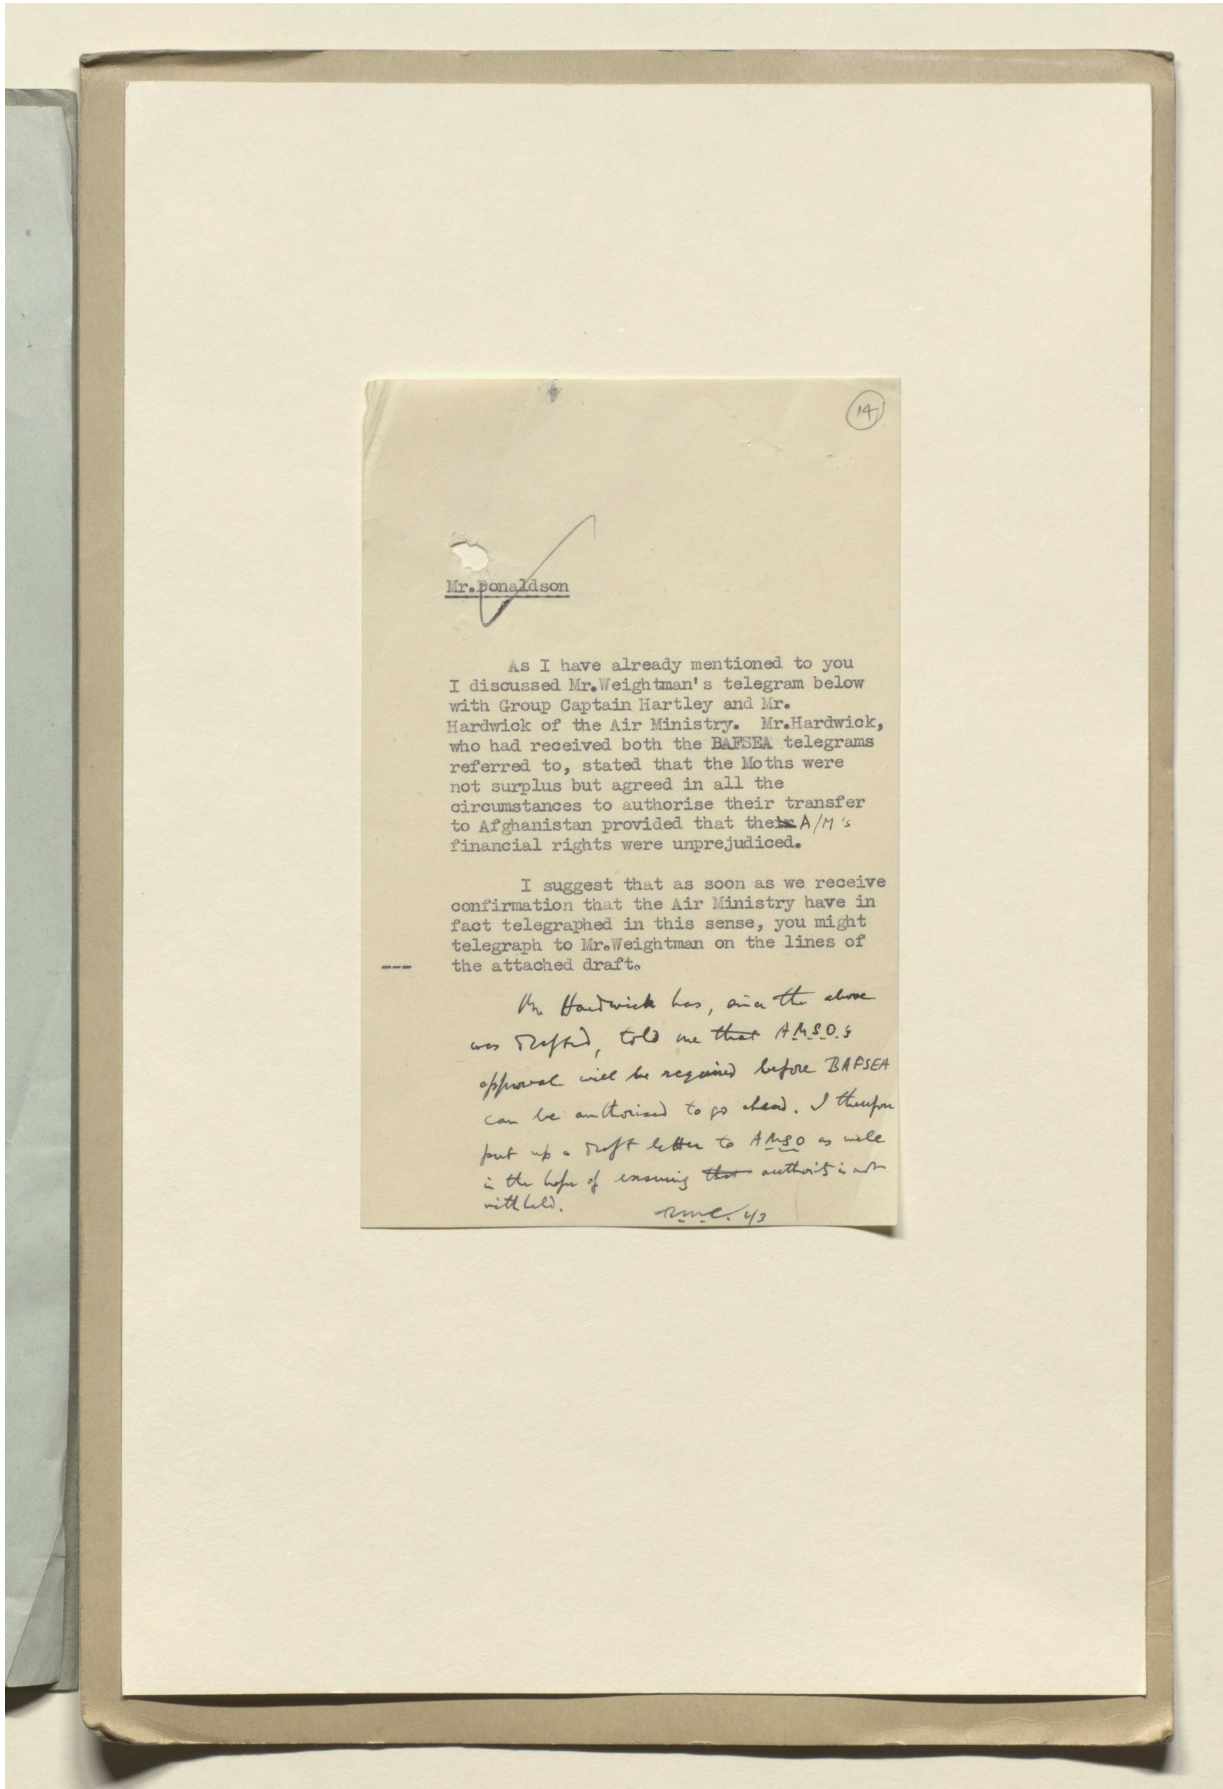 14
Mr.Donaldson
As I have already mentioned to you
I discussed Mr.Weightman's telegram below
with Group Captain Hartley and Mr.
Hardwick of the Air Ministry. Mr.Hardwick,
who had received both the BAFSEA telegrams
referred to, stated that the Moths were
not surplus but agreed in all the
circumstances to authorise their transfer
to Afghanistan provided that their A/M's
financial rights were unprejudiced.
I suggest that as soon as we receive
confirmation that the Air Ministry have in
fact telegraphed in this sense, you might
telegraph to Mr.Weightman on the lines of
--- the attached draft.
Mr. Hardwick has, since the above
was drafted, told me that A.M.S.O.'s
approval will be required before BAFSEA
can be authorised to go ahead. I therefore
put up a draft letter to AMSO as well
in the hope of ensuring that authority is not
withheld.